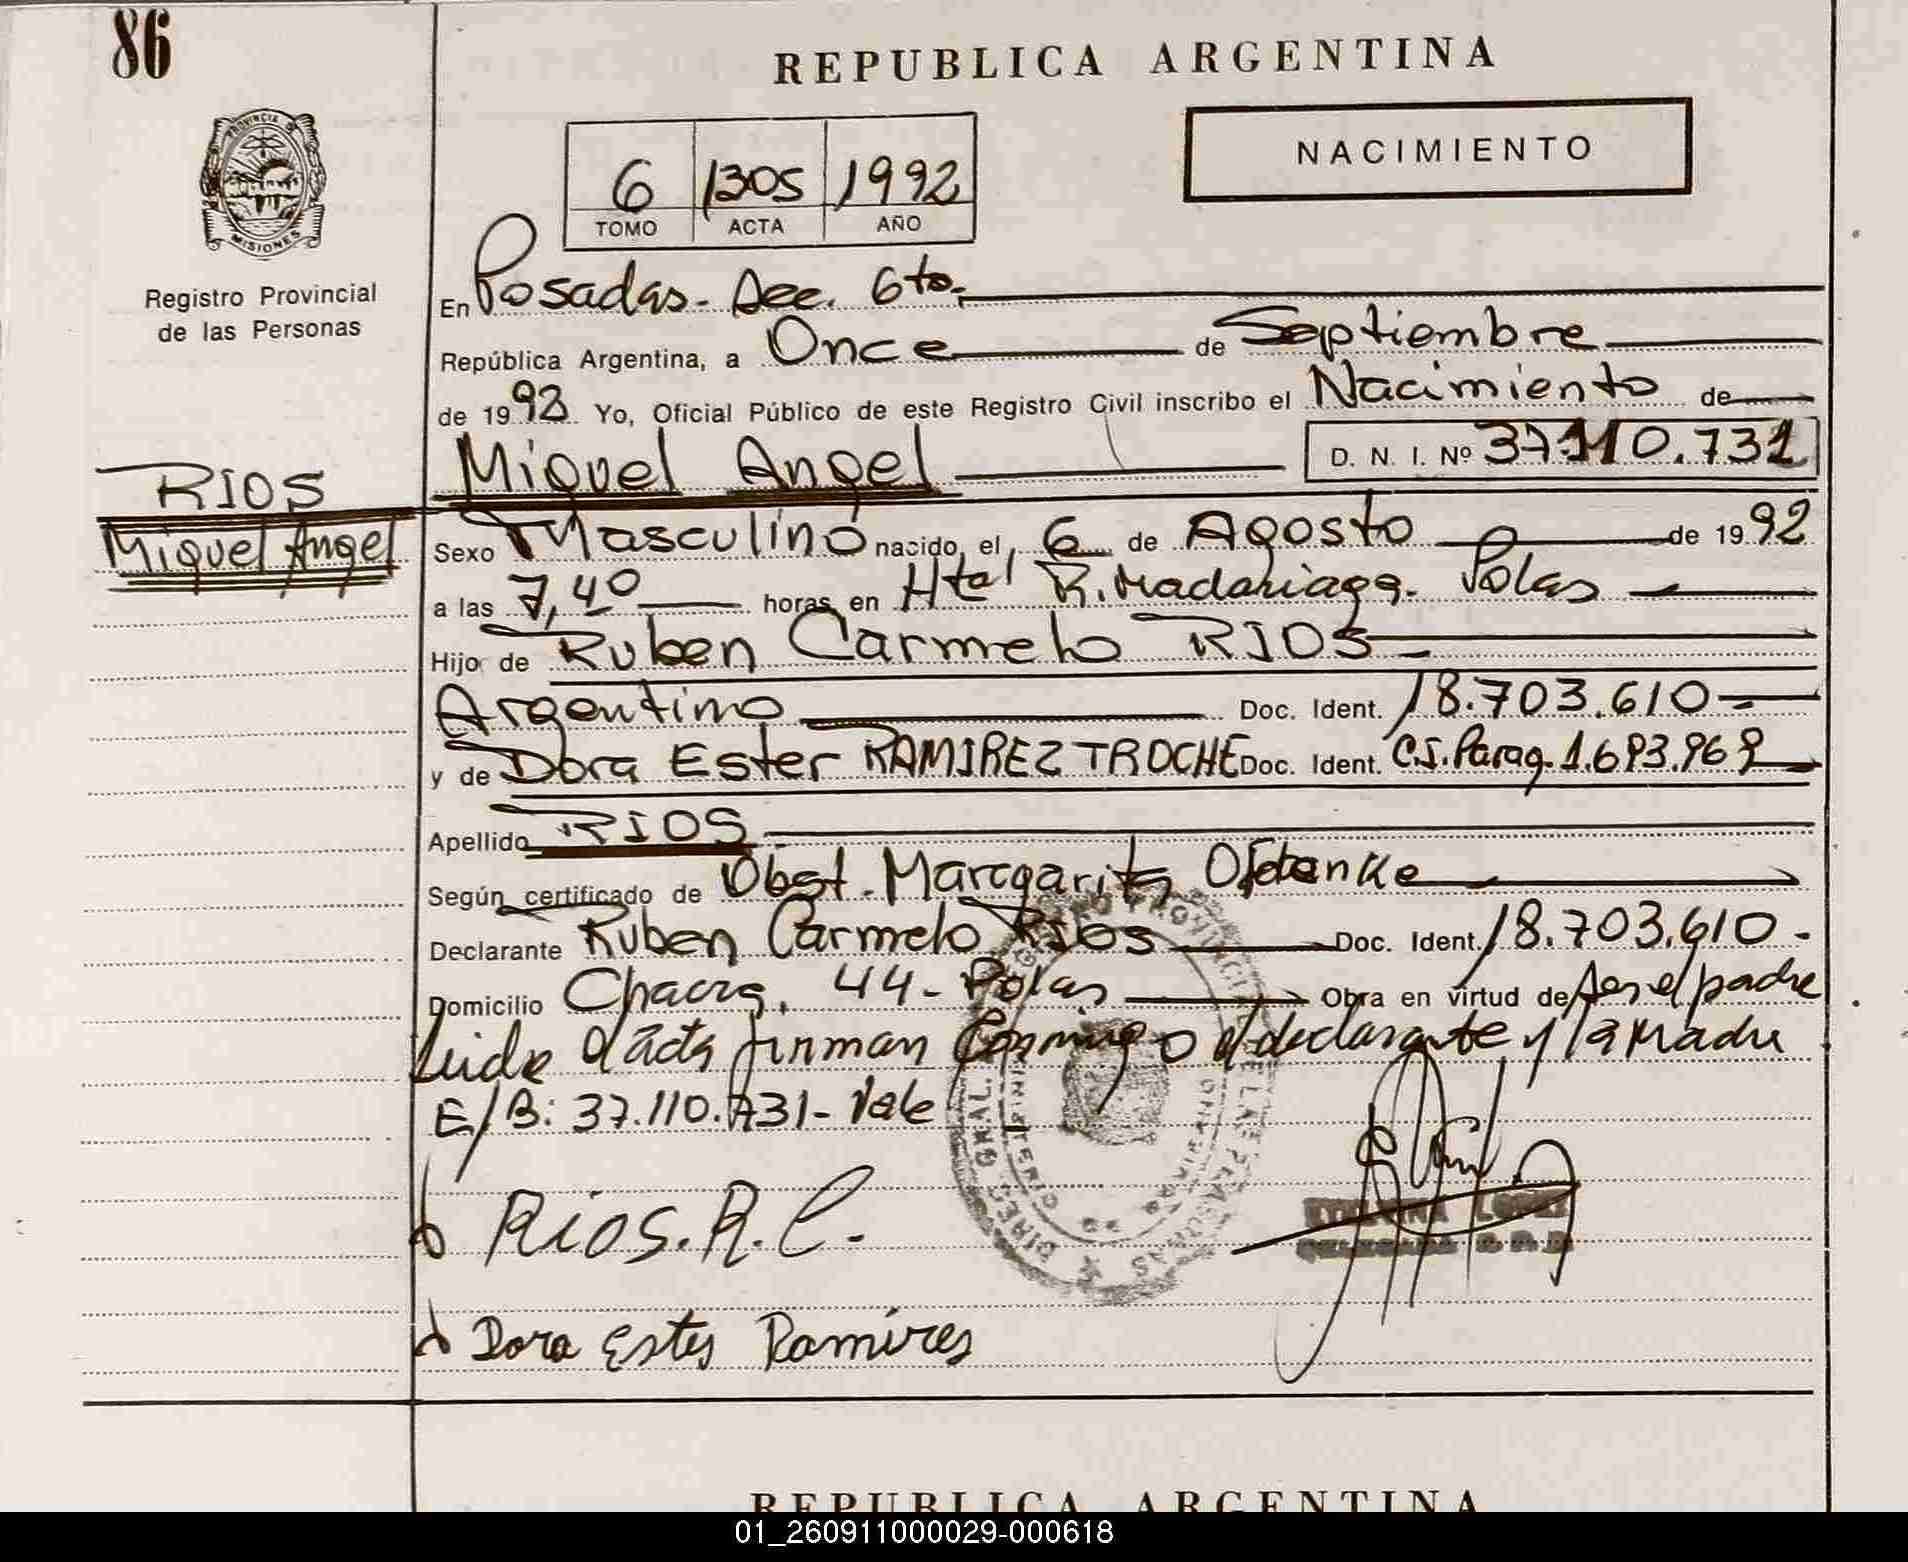 86
REPUBLICA ARGENTINA
NACIMIENTO
6 1305 1992
TOMO ACTA AÑO
PROVINCIA DE
MISIONES
Registro Provincial
de las Personas
En Posadas - Sec. 6to.
República Argentina, a Once de Septiembre
de 1992 Yo, Oficial Público de este Registro Civil inscribo el Nacimiento de
Miguel Angel D. N. I. Nº 37.110.731
RIOS
Miguel Angel
Sexo Masculino nacido, el 6 de Agosto de 1992
a las 7,40 horas en Htal R. Madariaga. Pdas
Hijo de Ruben Carmelo RIOS
Argentino Doc. Ident. 18.703.610
y de Dora Ester RAMIREZ TROCHE Doc. Ident. C.I. Parag. 1.693.969
Apellido RIOS
Según certificado de Obst. Margarita
Declarante Ruben Carmelo Rios Doc. Ident. 18.703.610.
Domicilio Chacra. 44 - Pdas Obra en virtud de ser el padre
Leida el acta firman conmigo el declarante y la madre
E/B: 37.110.731 - Vale
Rios. R. C.
LOPEZ
Dora Ester Ramires
REPUBLICA ARGENTINA
01_260911000029-000618